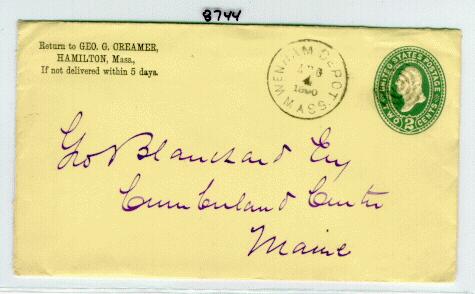 8744
Return to GEO. G. CREAMER,
HAMILTON, Mass.,
If not delivered within 5 days.
WENHAM DEPOT
4
MASS.
UNITED STATES POSTAGE
TWO 2 CENTS
Geo Blanchard Esq
Cumberland Center
Maine